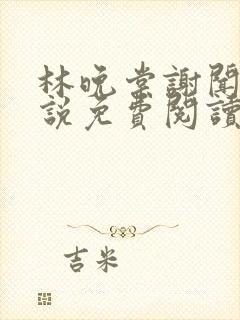 林晚棠謝聞
説免費閱讀
吉米